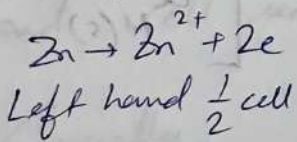 Zn → Zn²⁺ + 2e
Left hand 1/2 cell